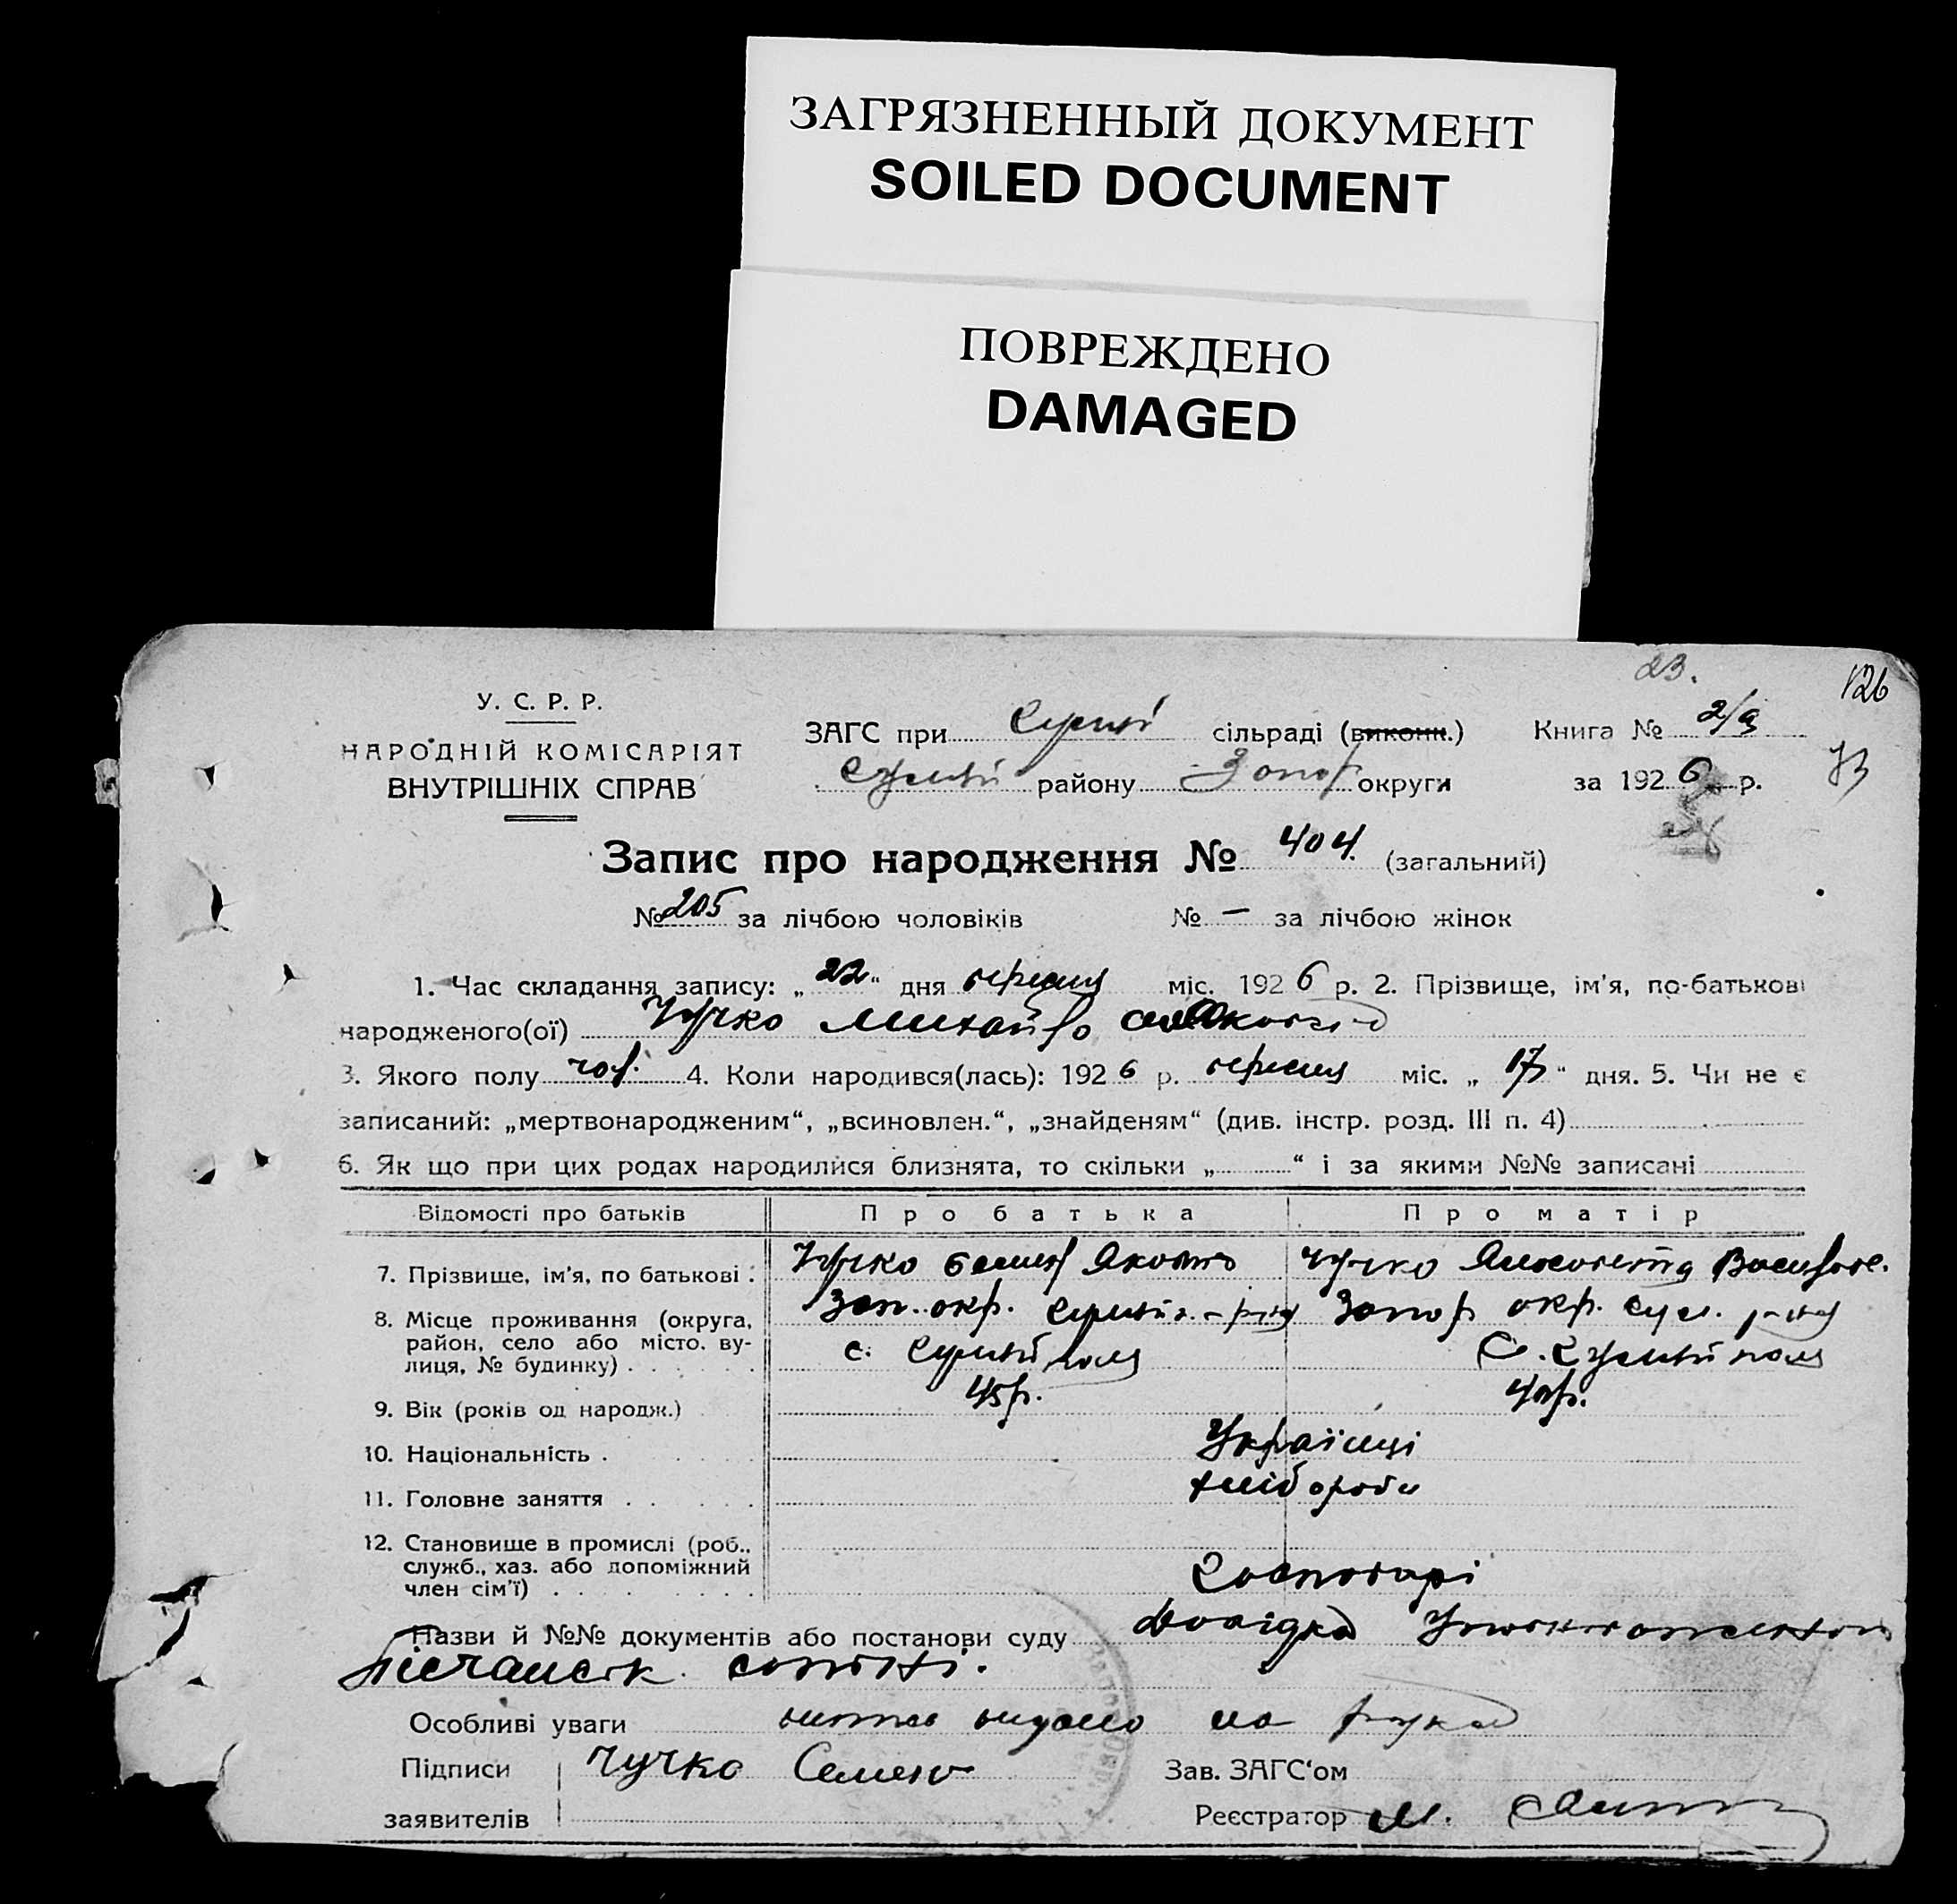 ЗАГРЯЗНЕННЫЙ ДОКУМЕНТ
SOILED DOCUMENT
ПОВРЕЖДЕНО
DAMAGED
23.
126
У. С. Р. Р.
НАРОДНІЙ КОМІСАРІЯТ
ВНУТРІШНІХ СПРАВ
ЗАГС при сільраді (виконк.) Книга № 2/а
району Запор округи за 1926 р.
73
Запис про народження № 404. (загальний)
№ 205 за лічбою чоловіків № — за лічбою жінок
1. Час складання запису: „22“ дня вересня міс. 1926 р. 2. Прізвище, ім'я, по-батькові
народженого(ої) Чучко Михайло
3. Якого полу чол. 4. Коли народився(лась): 1926 р. вересня міс. „17“ дня. 5. Чи не є
записаний: „мертвонародженим“, „всиновлен.“, „знайденям“ (див. інстр. розд. III п. 4)
6. Як що при цих родах народилися близнята, то скільки „ “ і за якими №№ записані
Відомості про батьків Про батька Про матір
7. Прізвище, ім'я, по батькові : Чучко Семен Яковл Чучко
8. Місце проживання (округа, район, село або місто, вулиця, № будинку) Зап. окр. Запор окр.
с. с.
9. Вік (років од народж.) 45 р.
10. Національність . Українці
11. Головне заняття . . . . . хлібороби
12. Становище в промислі (роб., служб., хаз. або допоміжний член сім'ї) Господарі
Назви й №№ документів або постанови суду Довідка
Особливі уваги видано на руки
Підписи Чучко Семен Зав. ЗАГС'ом
заявителів Реєстратор М.